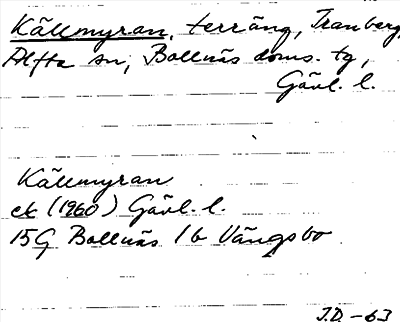 Källmyran, terräng, Tranberg,
Alfta sn, Bollnäs doms. tg,
Gävl. l.
Källmyran
ek (1960) Gävl. l.
15G Bollnäs 1b Vängsbo
J.D. -63